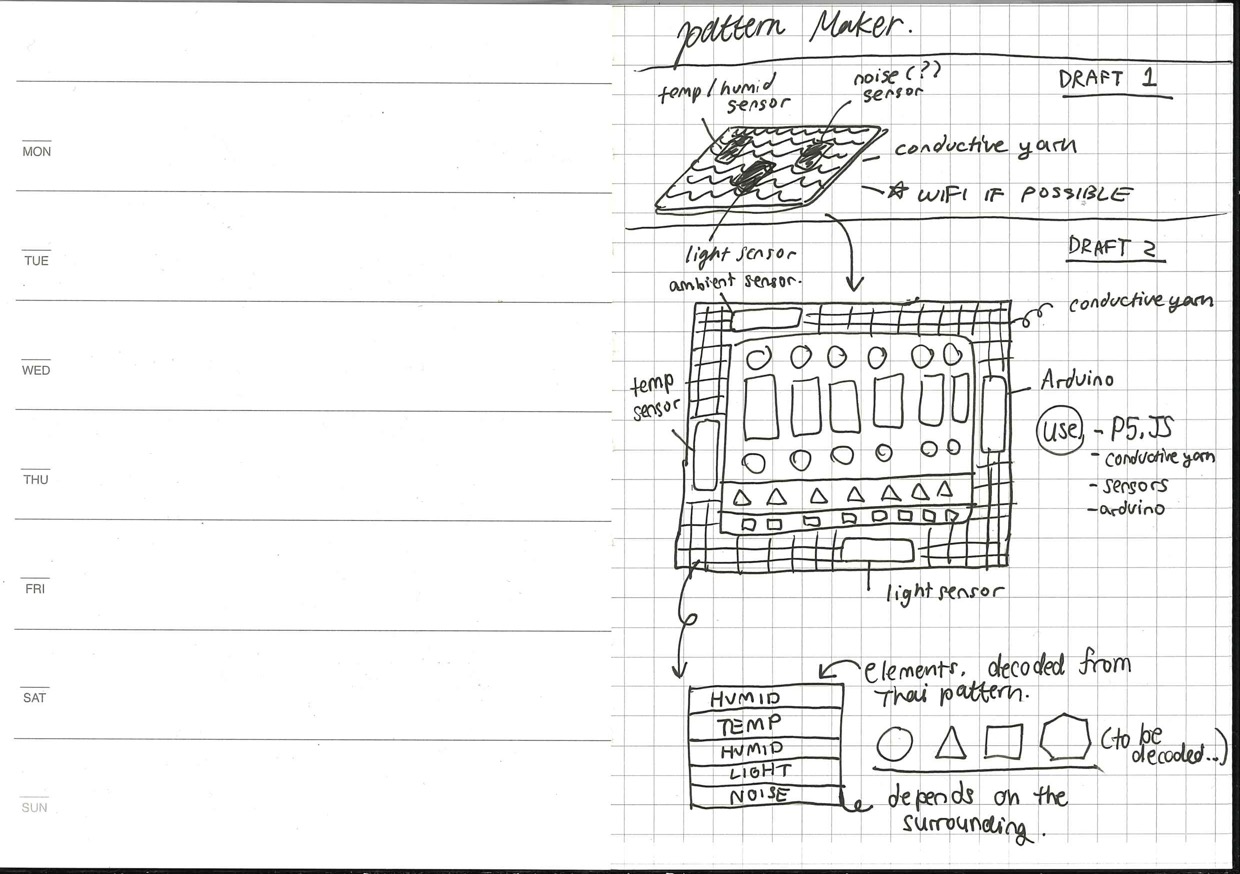 MON
TUE
WED
THU
FRI
SAT
SUN
pattern Maker.
DRAFT 1
temp/humid
sensor
noise (??)
sensor
conductive yarn
☆ WIFI IF POSSIBLE
light sensor
ambient sensor.
DRAFT 2
conductive yarn
temp
sensor
Arduino
use
- P5.JS
- conductive yarn
- sensors
- arduino
light sensor
elements, decoded from
Thai pattern.
HUMID
TEMP
HUMID
LIGHT
NOISE
(to be
decoded...)
depends on the
surrounding.